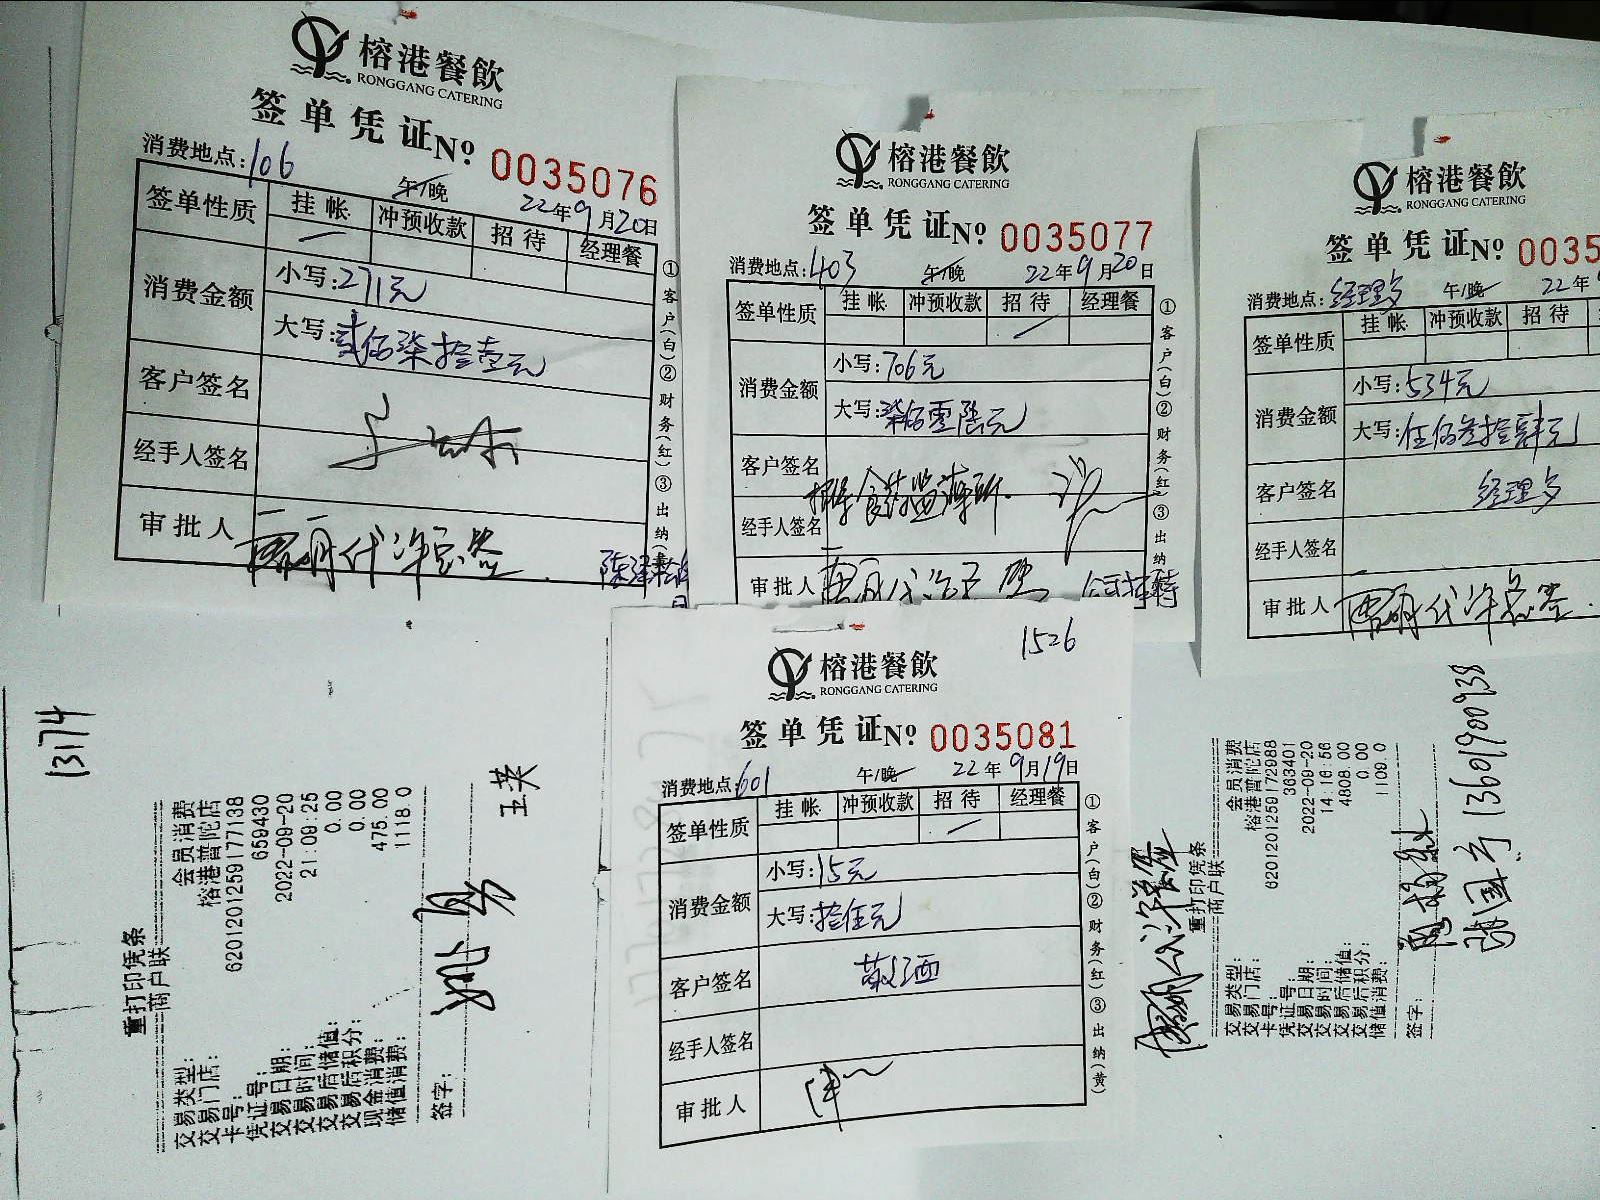 榕港餐飲
RONGGANG CATERING
签单凭证 Nº 0035076
消费地点:106
午/晚 22年9月20日
签单性质 挂帐 冲预收款 招待 经理餐
消费金额 小写:271元
大写:贰佰柒拾壹元
客户签名
经手人签名
审批人 代许总签
①客户(白)②财务(红)③出纳(
榕港餐飲
RONGGANG CATERING
签单凭证 Nº 0035077
消费地点:403 午/晚 22年9月20日
签单性质 挂帐 冲预收款 招待 经理餐
消费金额 小写:706元
大写:柒佰零陆元
客户签名
食药监
经手人签名
审批人 公司招待
①客户(白)②财务(红)③出纳
榕港餐飲
RONGGANG CATERING
签单凭证 Nº 0035
消费地点:经理餐 午/晚 22年
签单性质 挂帐 冲预收款 招待
消费金额 小写:534元
大写:伍佰叁拾肆元
客户签名 经理餐
经手人签名
审批人 代许总签
13174
重打印凭条
商户联
交易类型: 会员消费
交易门店: 榕港普陀店
卡号: 6201201259177138
凭证号: 659430
交易日期: 2022-09-20
交易时间: 21:09:25
交易后储值: 0.00
交易后积分: 0.00
现金消费: 475.00
储值消费: 1118.0
签字:
王英
1526
榕港餐飲
RONGGANG CATERING
签单凭证 Nº 0035081
消费地点:601 午/晚 22年9月19日
签单性质 挂帐 冲预收款 招待 经理餐
消费金额 小写:15元
大写:拾伍元
客户签名 敬酒
经手人签名
审批人
①客户(白)②财务(红)③出纳(黄)
重打印凭条
商户联
交易类型: 会员消费
交易门店: 榕港普陀店
卡号: 6201201259172988
凭证号: 363401
交易日期: 2022-09-20
交易时间: 14:16:56
交易后储值: 4808.00
交易后积分: 0.00
储值消费: 1109.0
签字:
13601900938